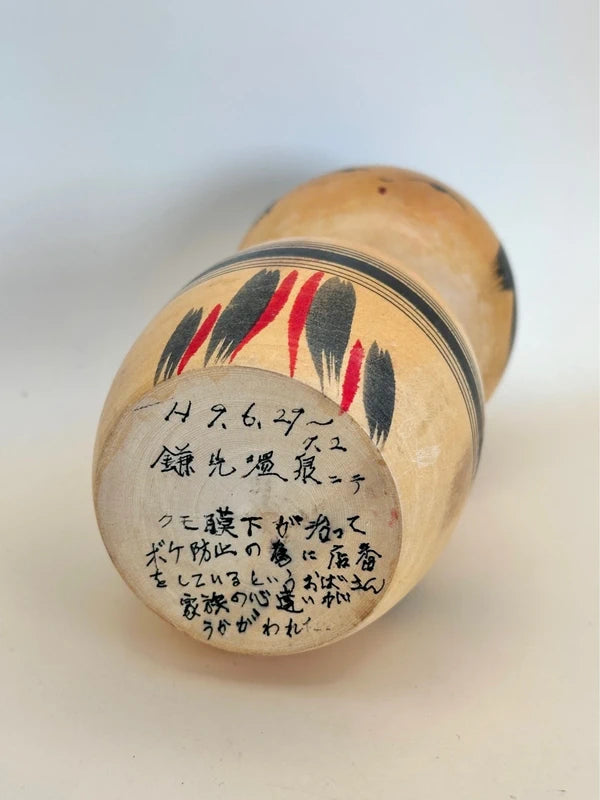 H 9.6.29〜
7.2
鎌先温泉ニテ
クモ膜下が治って
ボケ防止の為に店番
をしているというおばさん
家族の心遣いがが
うかがわれた…